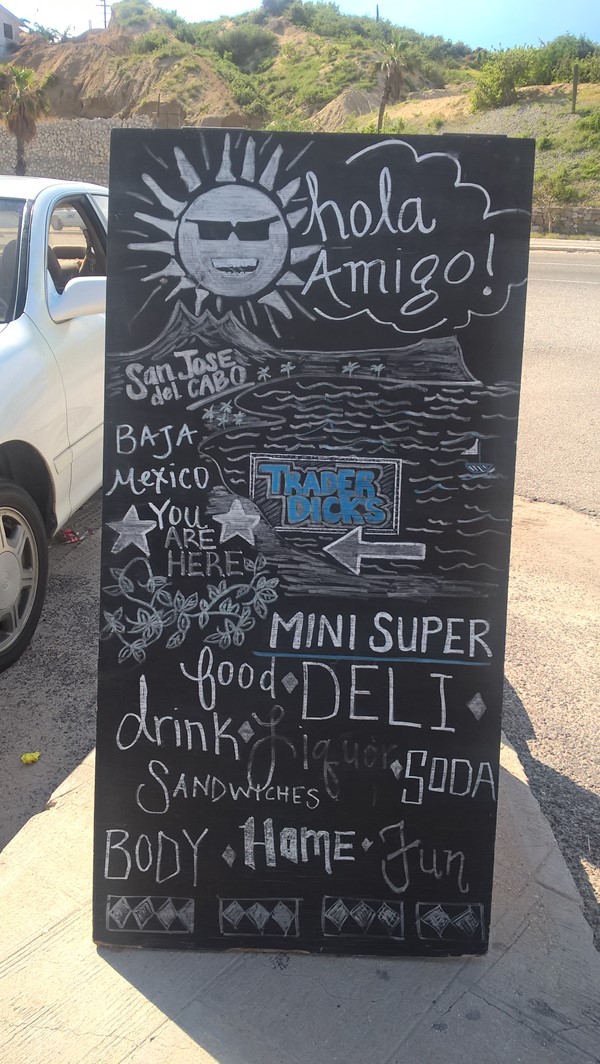 hola
Amigo!
San Jose
del CABO
BAJA
Mexico
YOU
ARE
HERE
TRADER
DICK'S
MINI SUPER
food DELI
drink Liquor
SODA
SANDWYCHES
BODY HOME Fun